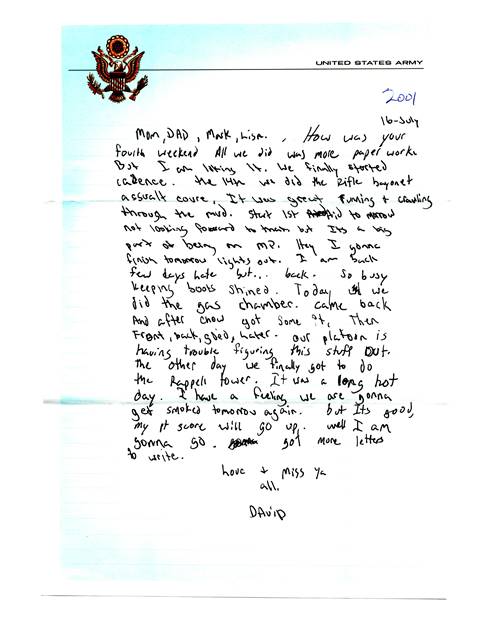 UNITED STATES ARMY
2001
16-July
Mom, DAD, Mark, Lisa., How was your
fourth weekend All we did was more paper work.
But I am loving it. We finally started
cadence. the 14th we did the Rifle bayonet
asswalt coure, It was great Running + crawling
through the mud. Start 1st Aid tomorrow
not looking forward to that but Its a big
part of being an MP. Hey I gonna
finish tomorrow lights out. I am back
few days late but... back. So busy
keeping boots shined. Today we
did the gas chamber. came back
And after chow got some Then
Front, back, goed, hater. our platoon is
having trouble figuring this stuff out.
the other day we finally got to do
the Rappell tower. It was a long hot
day. I have a feeling we are gonna
get smoked tomorrow again. but Its good,
my pt score will go up. well I am
gonna go. got more letters
to write.
Love + Miss Ya
all.
DAVID